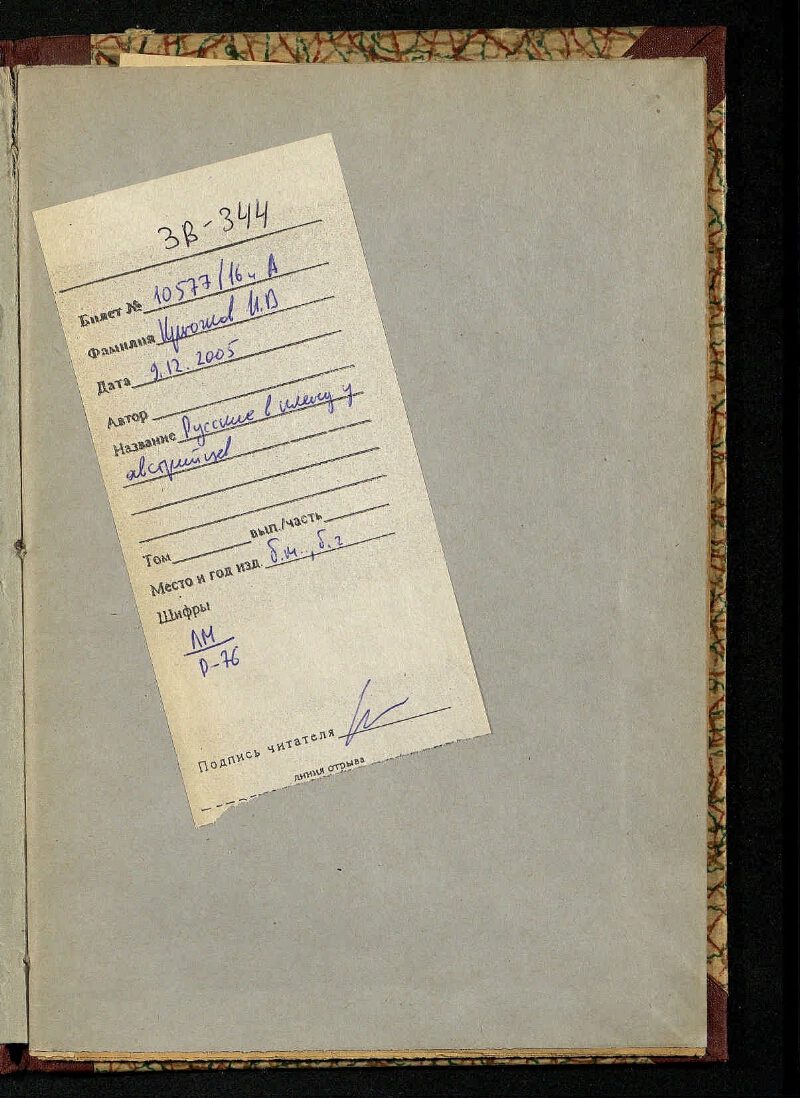 ЗВ-344
Билет № 10577/16ч А
Фамилия И.В
Дата 9.12.2005
Автор
Название Русские в плену у
австрийцев
Том вып./часть
Место и год изд. б.м., б.г
Шифры
ЛМ
Р-76
Подпись читателя
линия отрыва